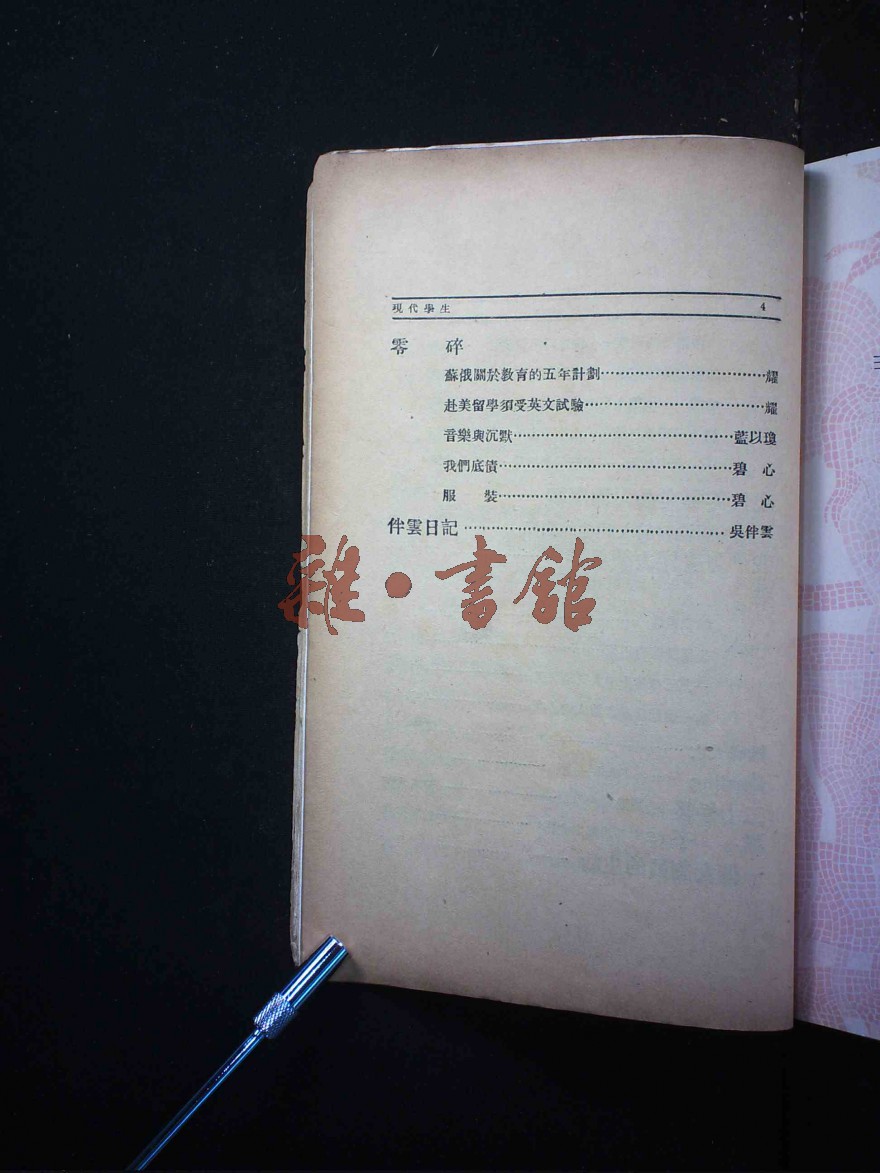 現代學生 4
零 碎
蘇俄關於教育的五年計劃⋯⋯⋯⋯⋯⋯⋯⋯⋯⋯耀
赴美留學須受英文試驗⋯⋯⋯⋯⋯⋯⋯⋯⋯⋯⋯耀
音樂與沉默⋯⋯⋯⋯⋯⋯⋯⋯⋯⋯⋯⋯⋯藍以瓊
我們底債⋯⋯⋯⋯⋯⋯⋯⋯⋯⋯⋯⋯⋯⋯碧 心
服 裝⋯⋯⋯⋯⋯⋯⋯⋯⋯⋯⋯⋯⋯⋯碧 心
伴雲日記⋯⋯⋯⋯⋯⋯⋯⋯⋯⋯⋯⋯⋯⋯吳伴雲
雜·書舘